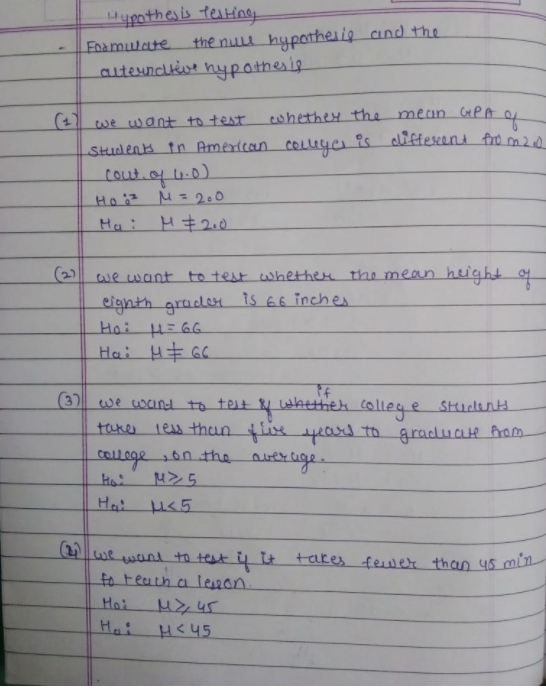 Hypothesis Testing
- Formulate the null hypothesis and the
alternative hypothesis
(1) we want to test whether the mean GPA of
students in American colleges is different from 2.0
(out of 4.0)
H0: μ = 2.0
Ha: μ ≠ 2.0
(2) we want to test whether the mean height of
eighth grader is 66 inches
H0: μ = 66
Ha: μ ≠ 66
(3) we want to test if college students
takes less than five years to graduate from
college, on the average.
H0: μ ≥ 5
Ha: μ < 5
(4) we want to test if it takes fewer than 45 min
to teach a lesson.
H0: μ ≥ 45
Ha: μ < 45